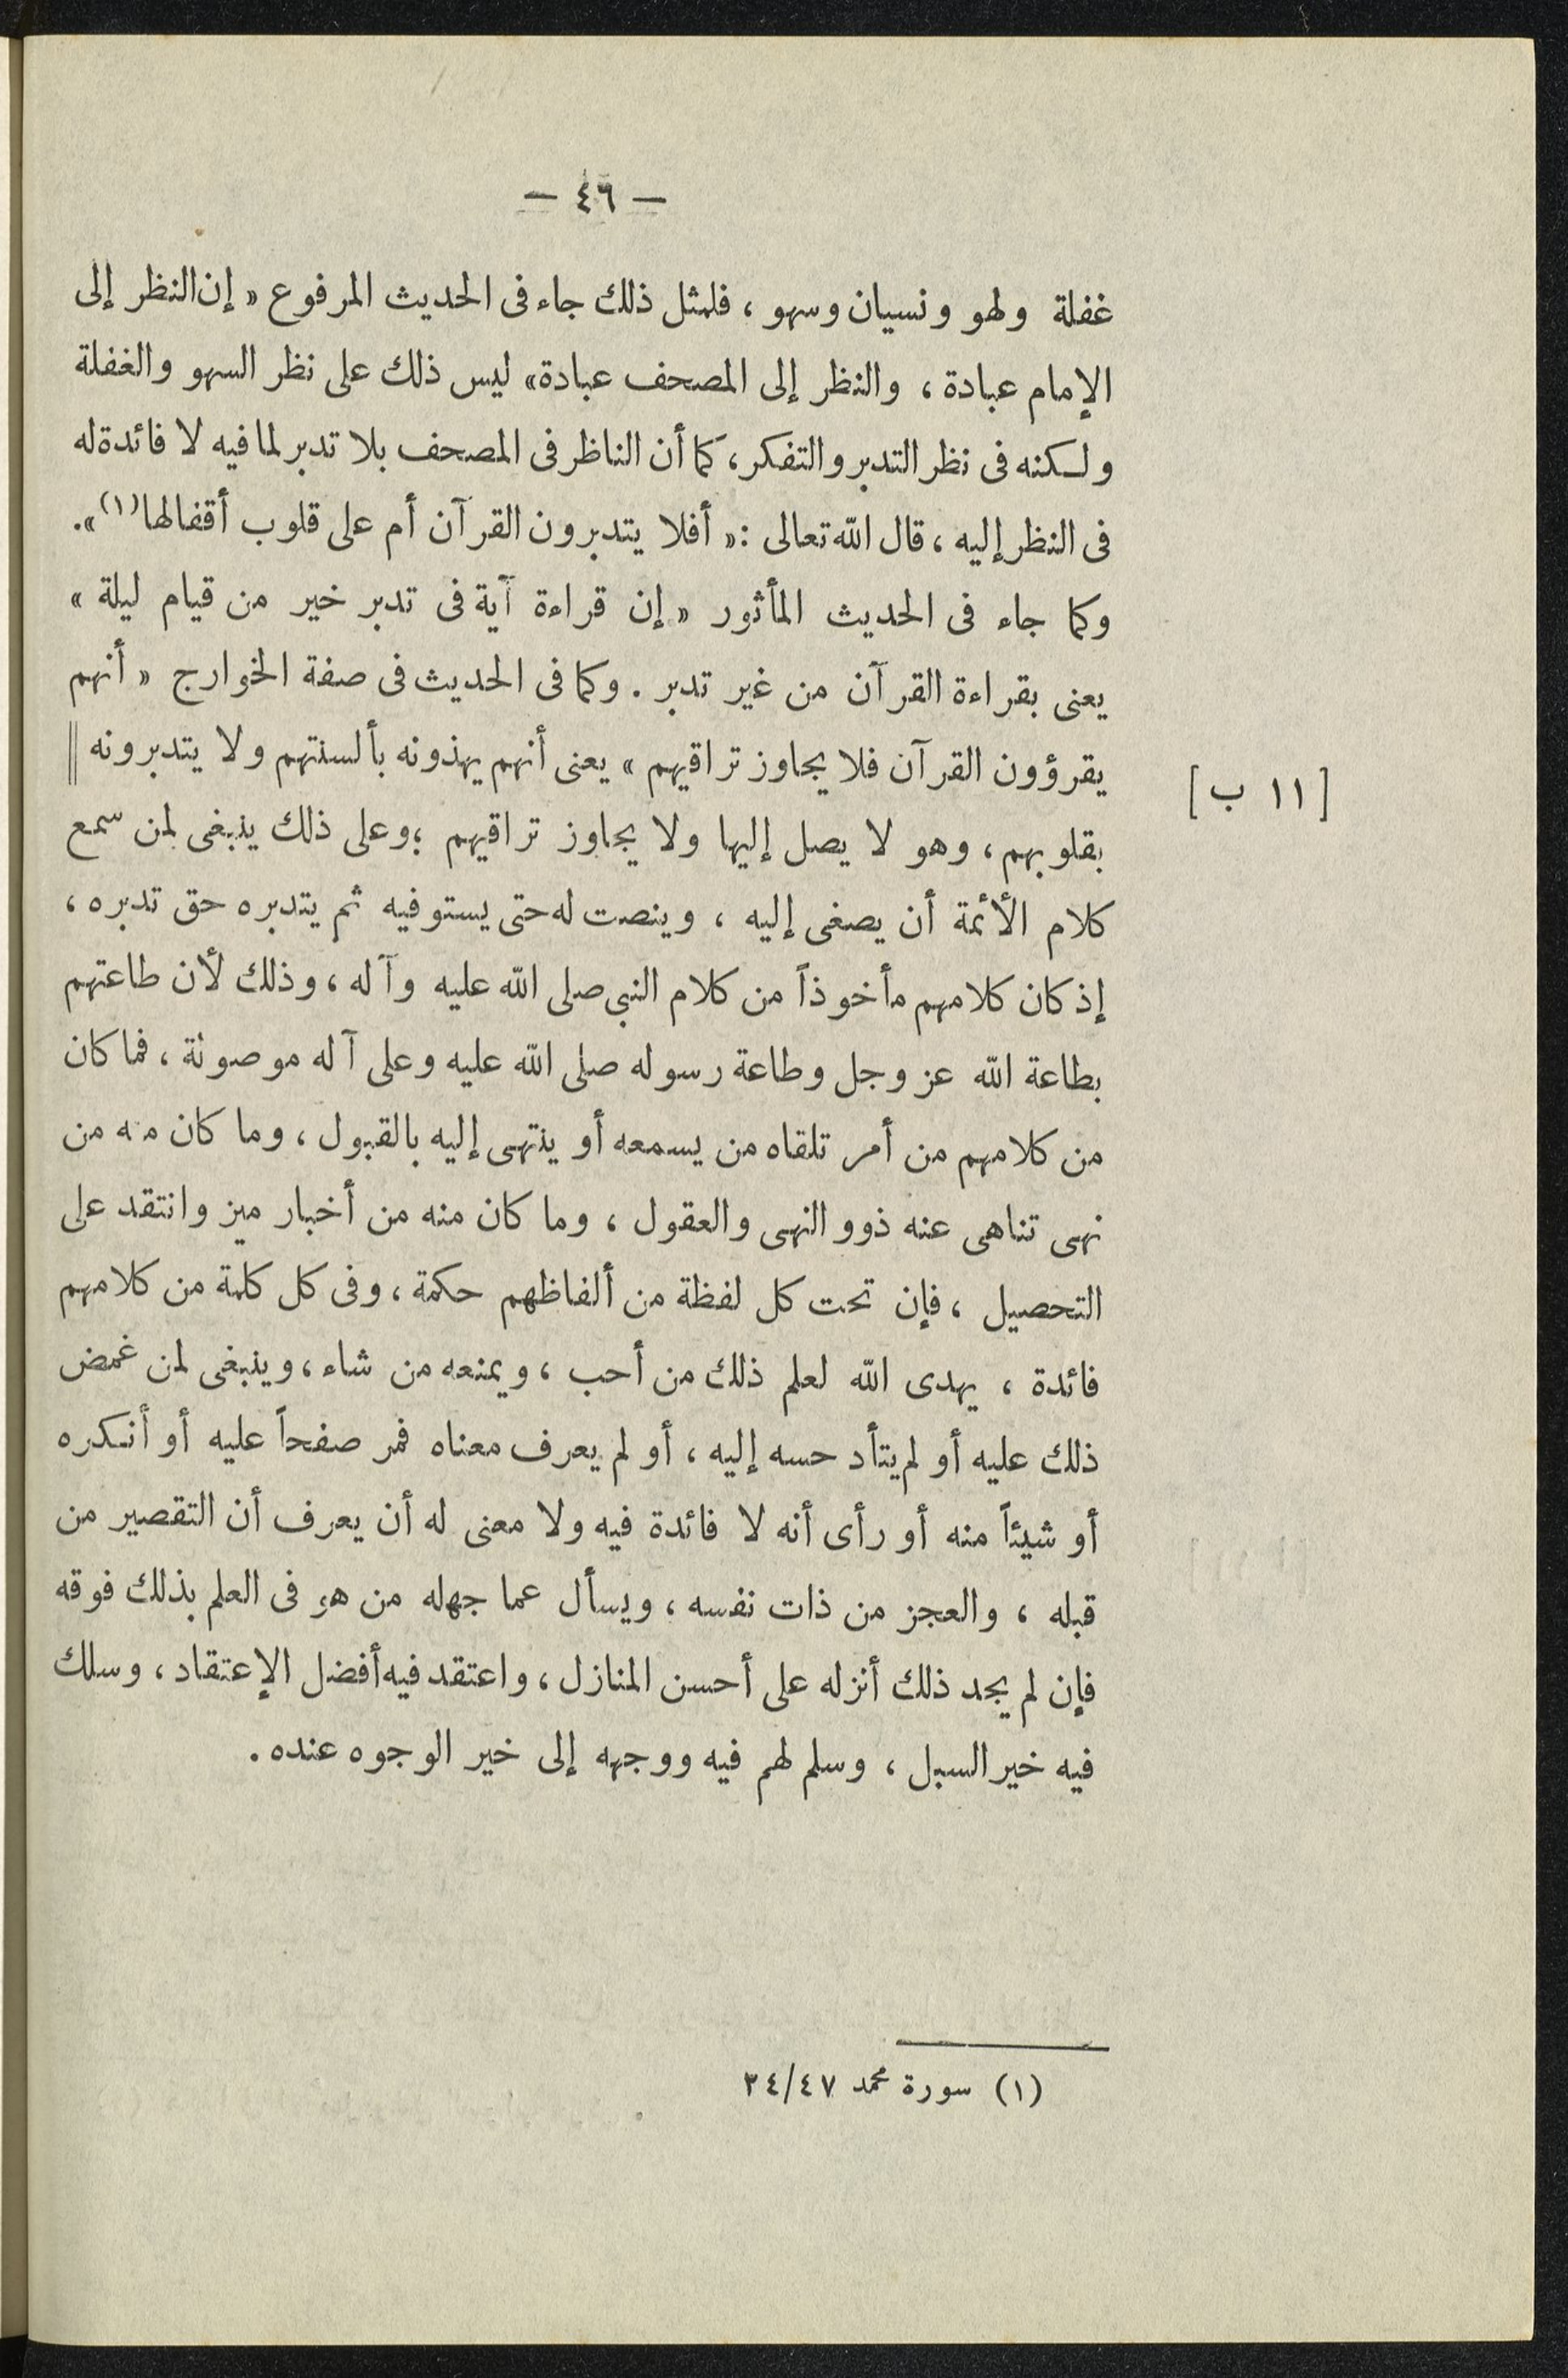 — ٤٦ —
غفلة ولهو ونسيان وسهو ، فلمثل ذلك جاء فى الحديث المرفوع « إن النظر إلى
الإمام عبادة ، والنظر إلى المصحف عبادة» ليس ذلك على نظر السهو والغفلة
ولكنه فى نظر التدبر والتفكر، كما أن الناظر فى المصحف بلا تدبر لما فيه لا فائدة له
فى النظر إليه ، قال الله تعالى :« أفلا يتدبرون القرآن أم على قلوب أقفالها(١)».
وكما جاء فى الحديث المأثور « إن قراءة آية فى تدبر خير من قيام ليلة »
يعنى بقراءة القرآن من غير تدبر . وكما فى الحديث فى صفة الخوارج « أنهم
يقرؤون القرآن فلا يجاوز تراقيهم » يعنى أنهم يهذونه بألسنتهم ولا يتدبرونه ||
[ ١١ ب ]
بقلوبهم ، وهو لا يصل إليها ولا يجاوز تراقيهم ؛ وعلى ذلك ينبغى لمن سمع
كلام الأئمة أن يصغى إليه ، وينصت له حتى يستوفيه ثم يتدبره حق تدبره ،
إذ كان كلامهم مأخوذاً من كلام النبى صلى الله عليه وآله ، وذلك لأن طاعتهم
بطاعة الله عز وجل وطاعة رسوله صلى الله عليه وعلى آله موصونة ، فما كان
من كلامهم من أمر تلقاه من يسمعه أو ينتهى إليه بالقبول ، وما كان منه من
نهى تناهى عنه ذوو النهى والعقول ، وما كان منه من أخبار ميز وانتقد على
التحصيل ، فإن تحت كل لفظة من ألفاظهم حكمة ، وفى كل كلمة من كلامهم
فائدة ، يهدى الله لعلم ذلك من أحب ، ويمنعه من شاء ، وينبغى لمن غمض
ذلك عليه أو لم يتأد حسه إليه ، أو لم يعرف معناه فمر صفحاً عليه أو أنكره
أو شيئاً منه أو رأى أنه لا فائدة فيه ولا معنى له أن يعرف أن التقصير من
قبله ، والعجز من ذات نفسه ، ويسأل عما جهله من هو فى العلم بذلك فوقه
فإن لم يجد ذلك أنزله على أحسن المنازل ، واعتقد فيه أفضل الإعتقاد ، وسلك
فيه خير السبل ، وسلم لهم فيه ووجهه إلى خير الوجوه عنده .
(١) سورة محمد ٢٤/٤٧